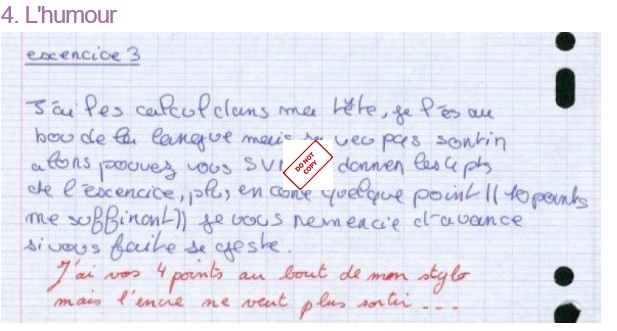 4. L'humour
excencice 3
J'ai les calcul dans ma tête, je l'es au
bou de la langue mais veu pas sontin
alons pouvez vous SVP donnen les 4 pts
de l'excencice, pls, en cone quelque point ((10 points
me suffinont)) je vous nemencie d'avance
si vous faite se geste.
DO NOT COPY
J'ai vos 4 points au bout de mon stylo
mais l'encre ne veut plus sortir ---